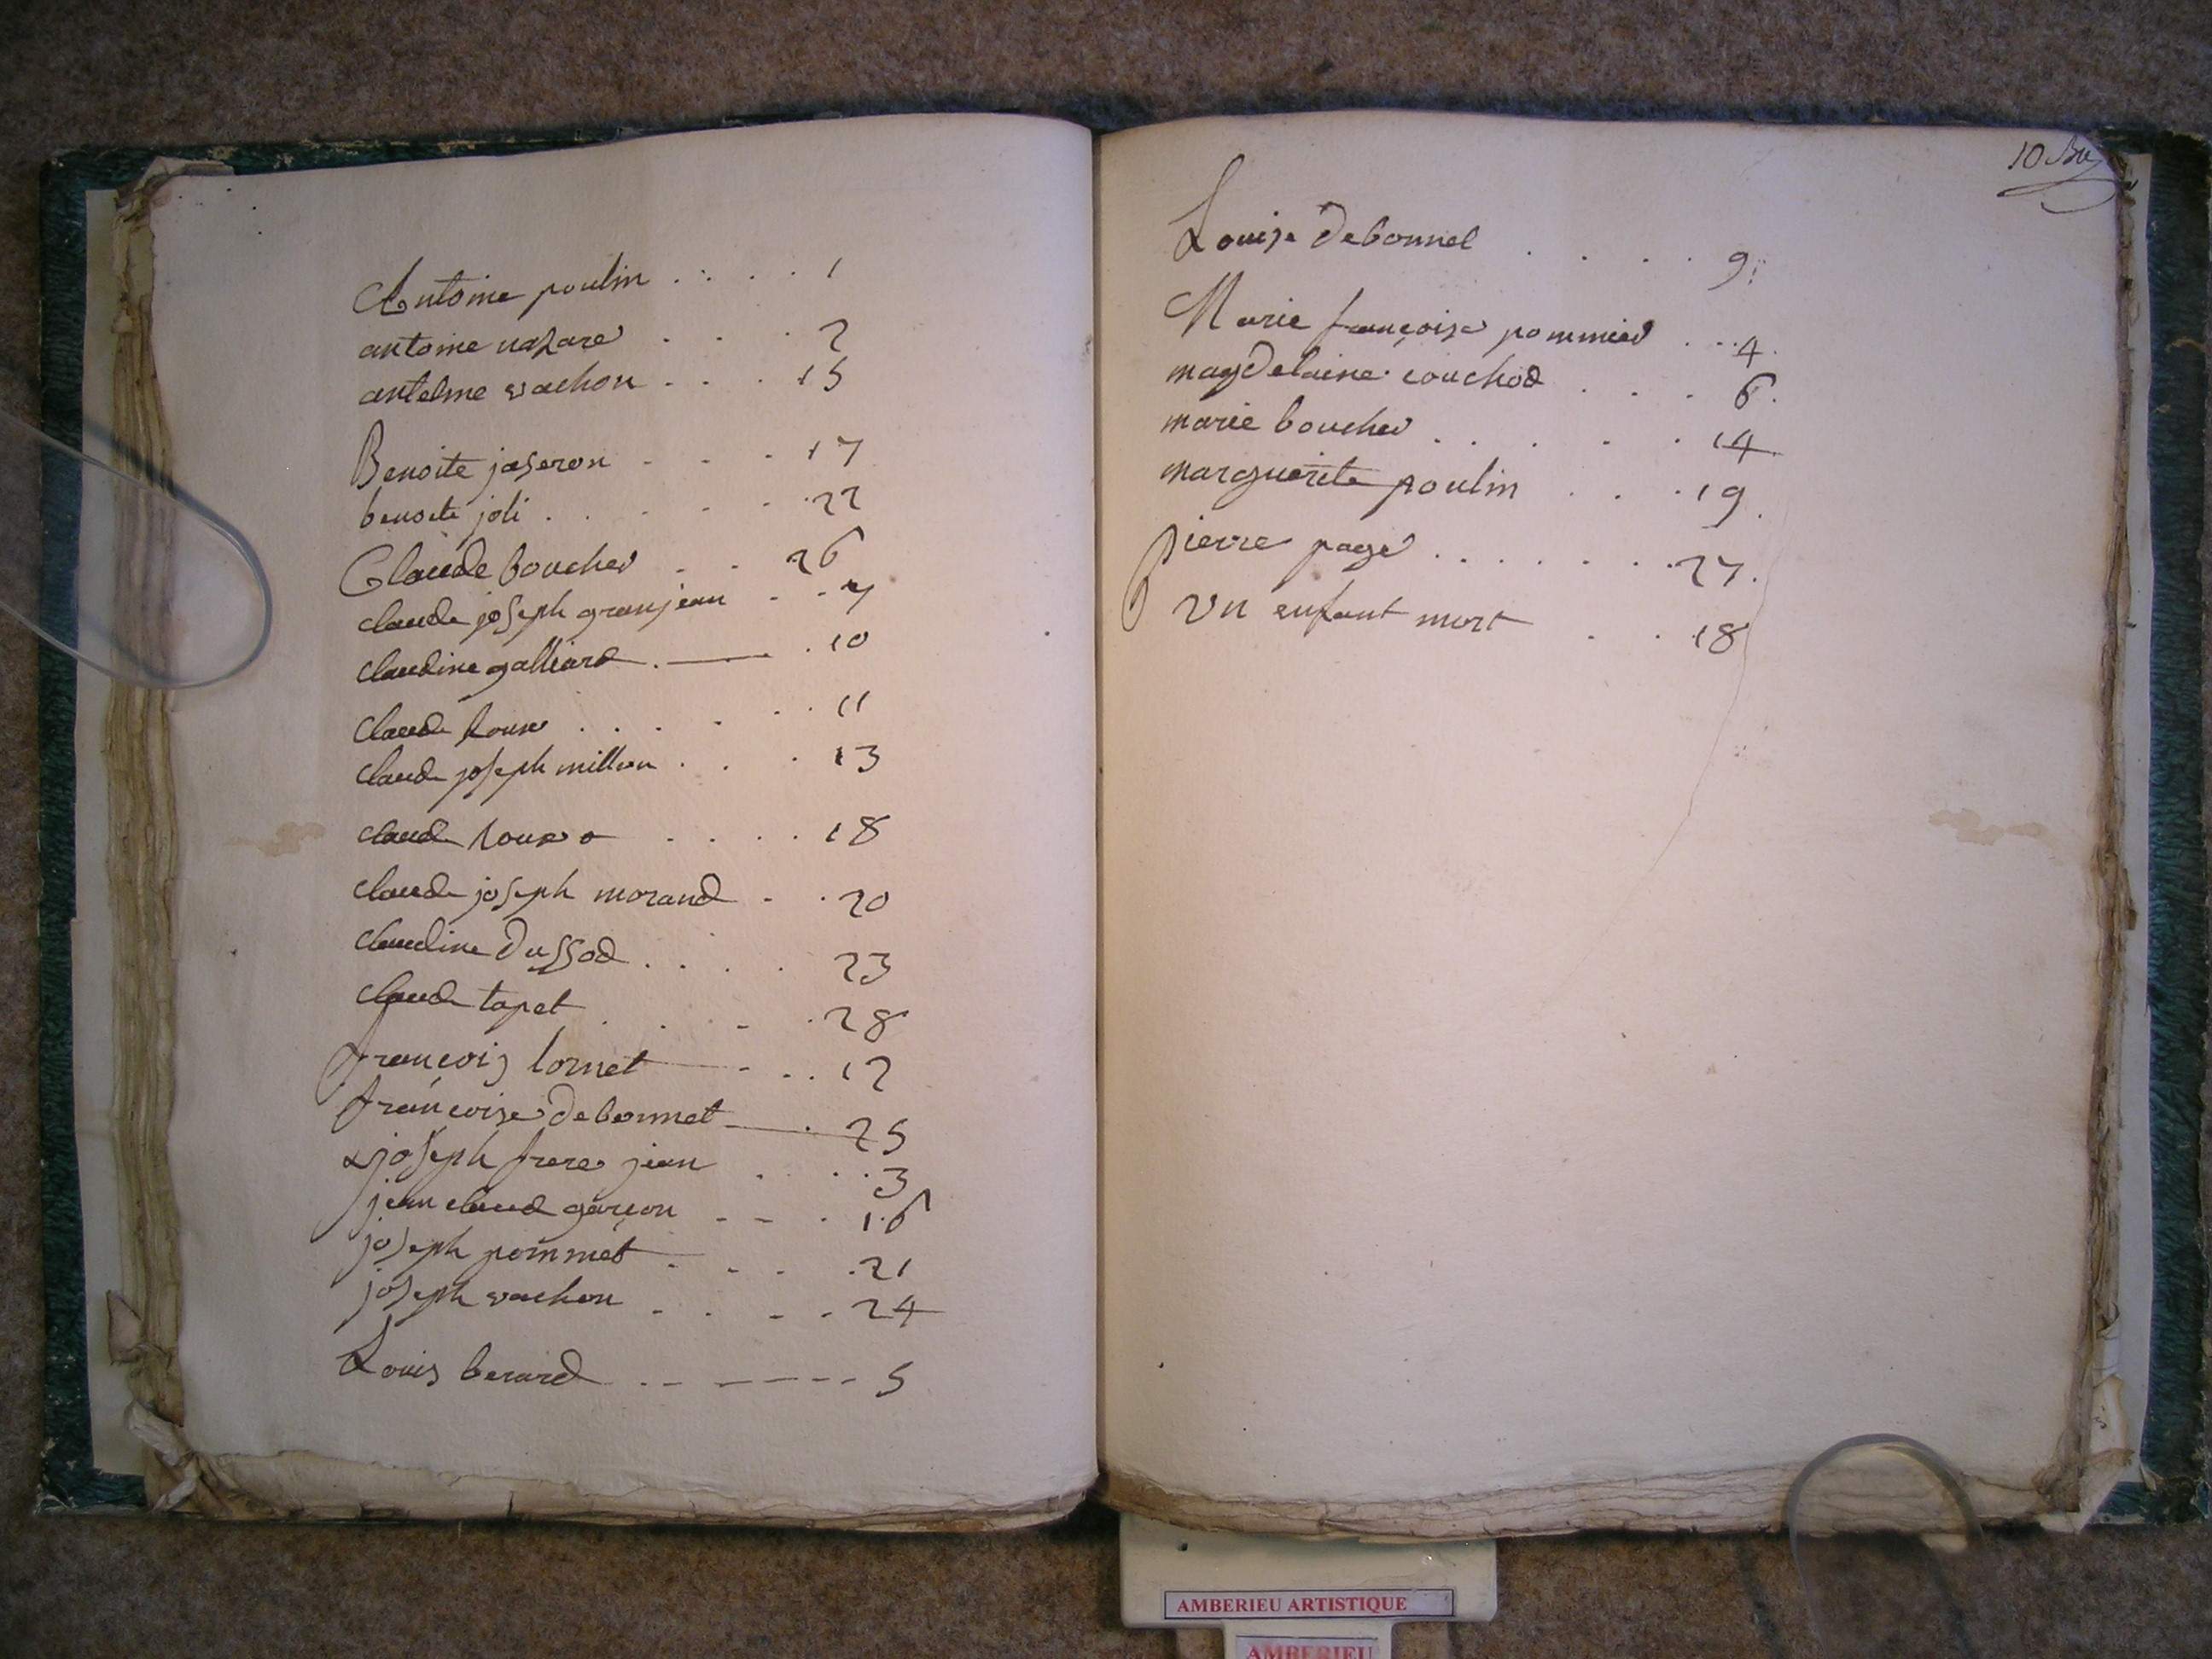 Antoine poulin . . . . 1
antoine nazare . . . 2
antelme vachon . . . 15
Benoite jaseron . . . 17
benoite joli . . . . . 22
Claude boucher . . 26
claude joseph granjean . . 7
claudine galliard . . 10
claude roux . . . . . 11
claude joseph millon . . . 13
claude roux . . . . 18
claude joseph morand . . 20
claudine dussod . . . . 23
claude tapet . . . . 28
françois lornet . . . 12
françoise debonnet . 25
joseph frere jean . . . 3
jean claude garçon . . . 16
joseph pommet . . . . 21
joseph vachon . . . . 24
Louis berard . . . . . . 5
10
Louise debonnel . . . . 9
Marie françoise pommier . . . 4
magdelaine couchod . . . 6
marie boucher . . . . . 14
marguerite poulin . . . 19
Pierre page . . . . . . 27
Un enfant mort . . 18
AMBERIEU ARTISTIQUE
AMBERIEU